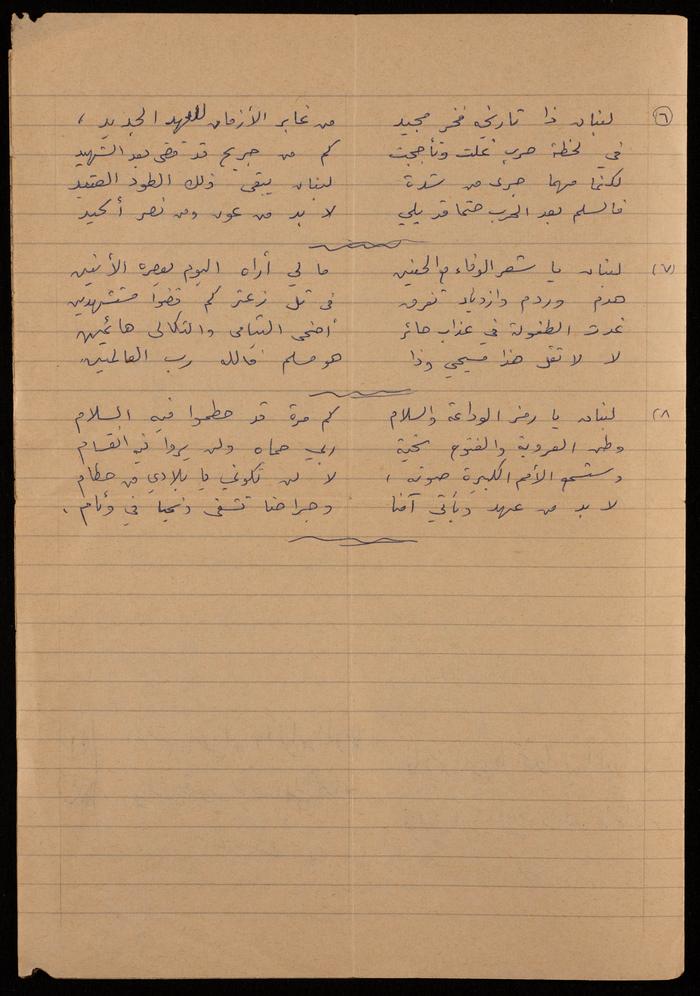 (٦) لبنان ذا تاريخه فخر مجيد من غابر الأزمان للعهد الجديد ،
في لحظة حرب غلت وتأججت كم من جريح قد قضى بعد الشهيد
لكنما مهما جرى من شدة لبنان يبقى ذلك الطود العتيد
فالسلم بعد الحرب حتما قد يلي لا بد من عون ومن نصر أكيد
(٧) لبنان يا شعر الوفاء مع الحنين ما لي أراه اليوم يعصره الأنين
هدم وردم وازدياد تفرق في تل زعتر كم قضوا مستشهدين
غدت الطفولة في عذاب حائر أضحى اليتامى والثكالى هائمين
لا لا تقل هذا مسيحي وذا هو مسلم فالله رب العالمين
(٨ لبنان يا رمز الوداعة والسلام كم مرة قد حطموا فيه السلام
وطن العروبة والفتوح تحية ربي حماه ولن يروا فيه انقسام
وستسمع الأمم الكبيرة صوته ، لا لن تكوني يا بلادي من حطام
لا بد من عهد ويأتي آمنا وجراحنا تشفى ونحيا في وئام .